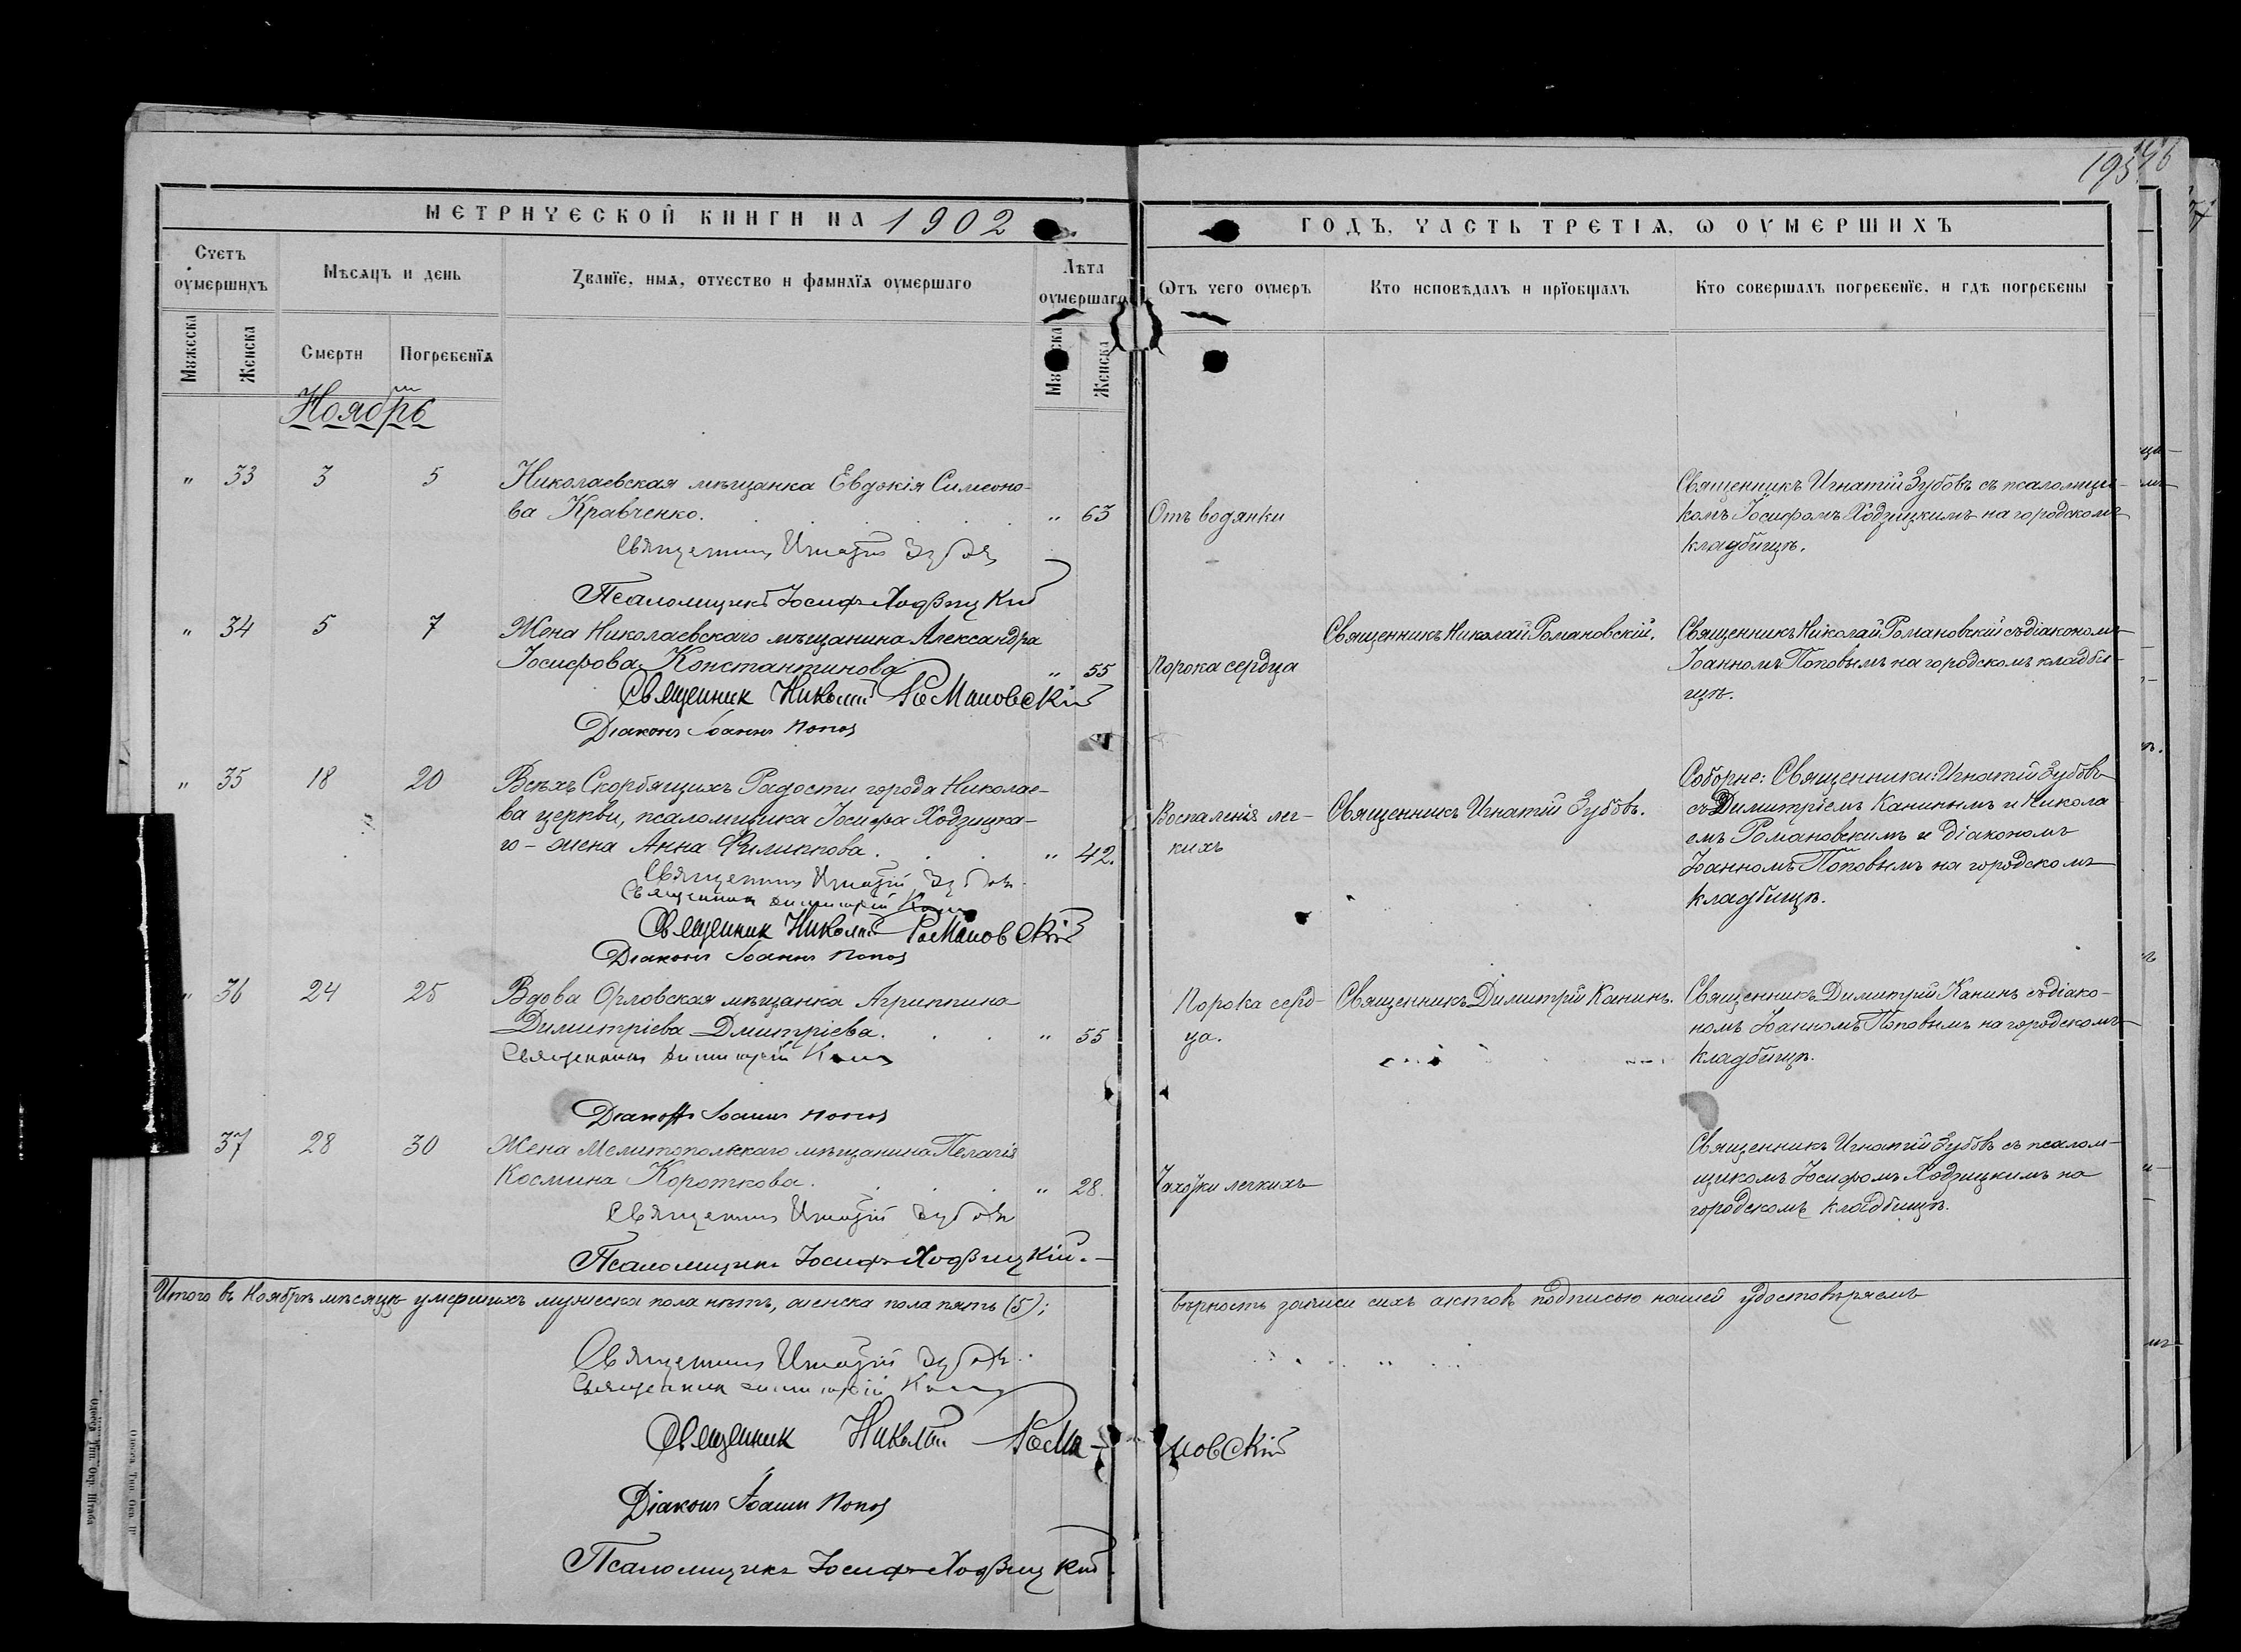 195
МЕТРИЧЕСКОЙ КНИГИ НА 1902
ГОДЪ, ЧАСТЬ ТРЕТІѦ, Ѡ ОУМЕРШИХЪ
Счетъ оумершихъ
Мѣсѧцъ и день
Званїе, имѧ, отчество и фамилїѧ оумершаго
Лѣта оумершаго
Ѿтъ чего оумеръ
Кто исповѣдалъ и прїобщалъ
Кто совершалъ погребенїе, и гдѣ погребены
Мꙋжеска
Женска
Смерти
Погребенїѧ
Женска
Ноябрь
" 33 3 5 Николаевская мѣщанка Евдокія Симеоно-
ва Кравченко. " 63
Отъ водянки
Священникъ Игнатій Зубовъ съ псаломщи-
комъ Іосифомъ Ходзицкимъ на городскомъ
кладбищѣ.
Священникъ Игнатій Зубовъ
Псаломщикъ Іосифъ Ходзицкій
" 34 5 7 Жена Николаевскаго мѣщанина Александра
Іосифова Константинова " 55
Порока сердца
Священникъ Николай Романовскій.
Священникъ Николай Романовскій съ діакономъ
Іоанномъ Поповымъ на городскомъ кладби-
щѣ.
Священник Николай Романовскій
Діаконъ Іоаннъ Поповъ
" 35 18 20 Всѣхъ Скорбящихъ Радости города Николае-
ва церкви, псаломщика Іосифа Ходзицка-
го - жена Анна Филиппова. " 42.
Воспаленія лег-
кихъ
Священникъ Игнатій Зубовъ.
Соборне: Священники: Игнатій Зубовъ
съ Димитріемъ Канинымъ и Никола
емъ Романовскимъ и діакономъ
Іоанномъ Поповымъ на городскомъ
кладбищѣ.
Священникъ Игнатій Зубовъ.
Священник Димитрій Канинъ
Священник Николай Романовскій
Діаконъ Іоаннъ Поповъ
" 36 24 25 Вдова Орловская мѣщанка Агриппина
Димитріева Дмитріева. " 55
Порока серд-
ца.
Священникъ Димитрій Канинъ.
Священникъ Димитрій Канинъ съ діако-
номъ Іоанномъ Поповымъ на городскомъ
кладбищѣ.
Священникъ Димитрій Канинъ
Діаконъ Іоаннъ Поповъ
37 28 30 Жена Мелитопольскаго мѣщанина Пелагія
Космина Короткова. " 28.
Чахотки легкихъ
Священникъ Игнатій Зубовъ съ псалом-
щикомъ Іосифомъ Ходзицкимъ на
городскомъ кладбищѣ.
Священникъ Игнатій Зубовъ
Псаломщикъ Іосифъ Ходзицкій.
Итого въ Ноябрѣ мѣсяцѣ умершихъ мужеска пола нѣтъ, женска пола пять (5);
вѣрность записи сихъ актовъ подписью нашей удостовѣряемъ
Священникъ Игнатій Зубовъ.
Священник Димитрій Канинъ
Священник Николай Романовскій
Діаконъ Іоаннъ Поповъ
Псаломщикъ Іосифъ Ходзицкій.